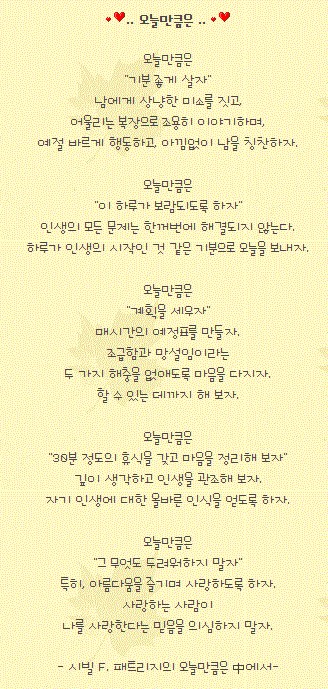 .. 오늘만큼은 ..
오늘만큼은
"기분 좋게 살자"
남에게 상냥한 미소를 짓고,
어울리는 복장으로 조용히 이야기하며,
예절 바르게 행동하고, 아낌없이 남을 칭찬하자.
오늘만큼은
"이 하루가 보람되도록 하자"
인생의 모든 문제는 한꺼번에 해결되지 않는다.
하루가 인생의 시작인 것 같은 기분으로 오늘을 보내자.
오늘만큼은
"계획을 세우자"
매시간의 예정표를 만들자.
조급함과 망설임이라는
두 가지 해충을 없애도록 마음을 다지자.
할 수 있는 데까지 해 보자.
오늘만큼은
"30분 정도의 휴식을 갖고 마음을 정리해 보자"
깊이 생각하고 인생을 관조해 보자.
자기 인생에 대한 올바른 인식을 얻도록 하자.
오늘만큼은
"그 무엇도 두려워하지 말자"
특히, 아름다움을 즐기며 사랑하도록 하자.
사랑하는 사람이
나를 사랑한다는 믿음을 의심하지 말자.
- 시빌 F. 패트리지의 오늘만큼은 中에서-